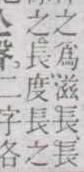 之爲滋長長
之長度長之
聲,二字各